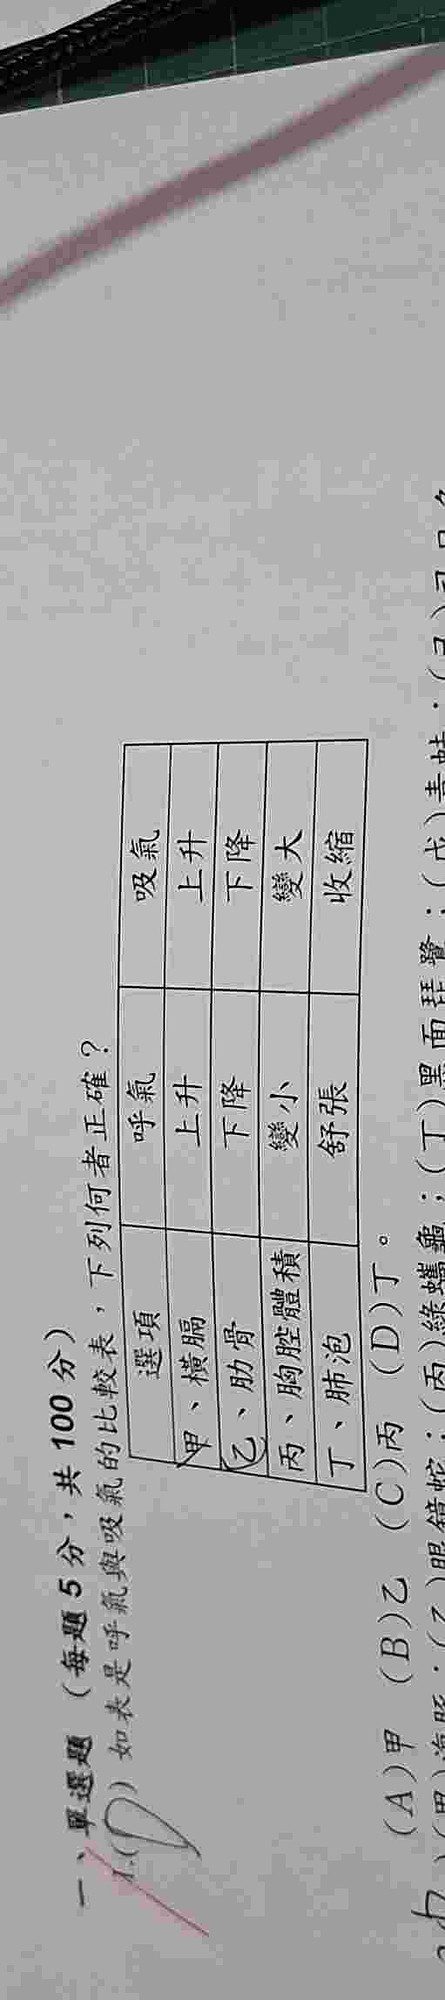 一、單選題（每題 5 分，共 100 分）
1.(D) 如表是呼氣與吸氣的比較表，下列何者正確？
選項 呼氣 吸氣
甲、橫膈 上升 上升
乙、肋骨 下降 下降
丙、胸腔體積 變小 變大
丁、肺泡 舒張 收縮
(A)甲 (B)乙 (C)丙 (D)丁。
(乙)眼鏡蛇；(丙)綠蠵龜；(丁)黑面琵鷺；(戊)青蛙